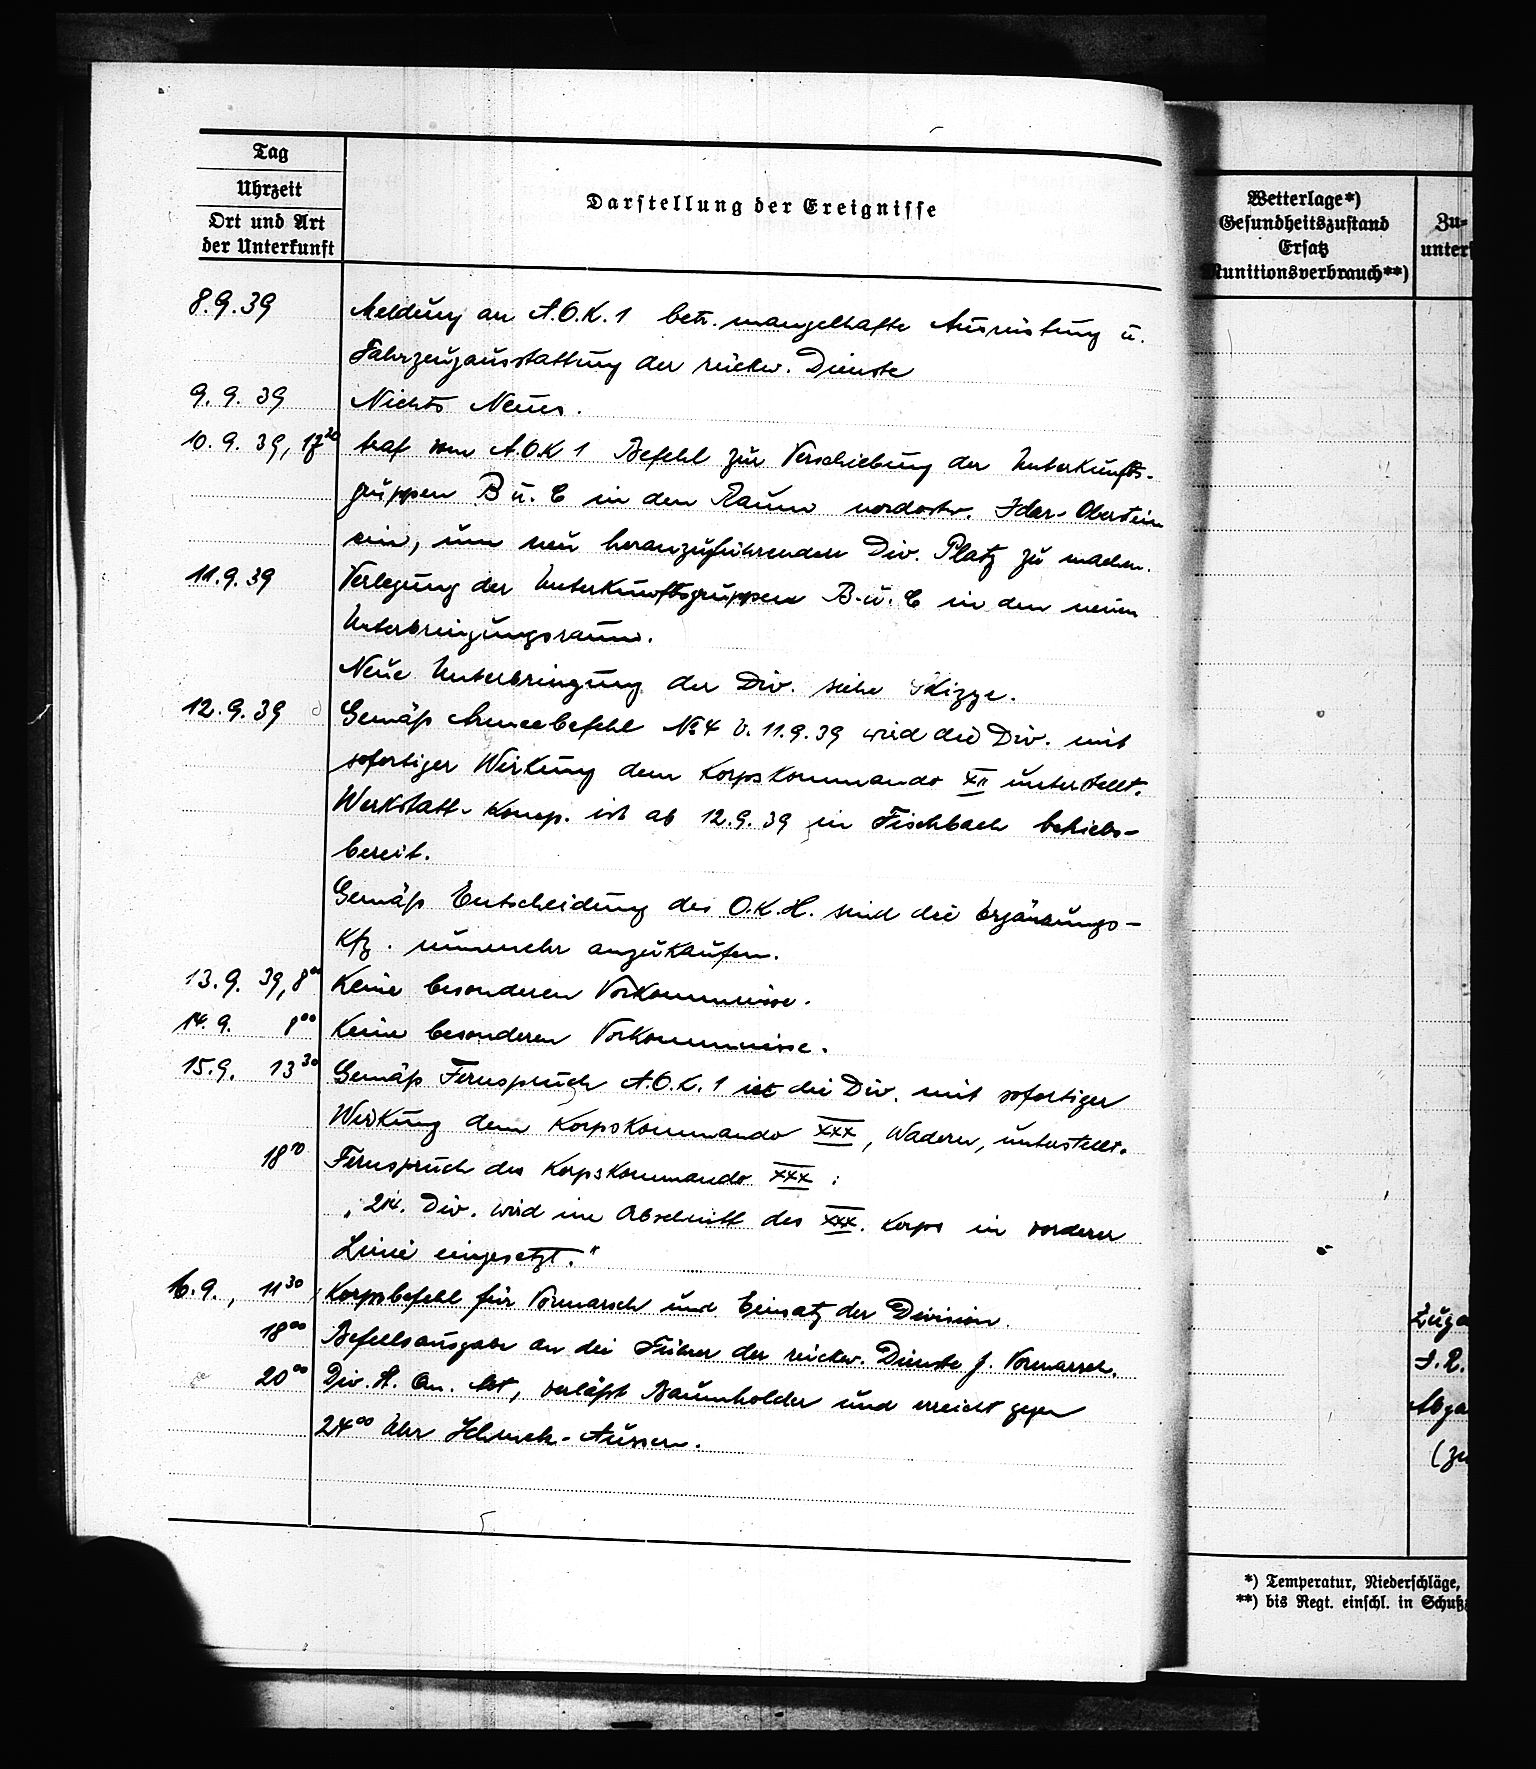 Tag
Uhrzeit
Ort und Art
der Unterkunft
Darstellung der Ereignisse
8.9.39 Meldung an A.O.K. 1 betr. mangelhafte Ausrüstung u.
Fahrzeugausstattung der rückw. Dienste
9.9.39 Nichts Neues.
10.9.39, 17²⁰ traf vom A.O.K 1 Befehl zur Verschiebung der Unterkunfts-
gruppen B u. C in den Raum nordostw. Idar-Oberstein
ein, um neu heranzuführenden Div. Platz zu machen.
11.9.39 Verlegung der Unterkunftsgruppen B. u. C in den neuen
Unterbringungsraum.
Neue Unterbringung der Div. siehe Skizze.
12.9.39 Gemäß Armeebefehl No 4 v. 11.9.39 wird die Div. mit
sofortiger Wirkung dem Korpskommando XII unterstellt.
Werkstatt-Komp. ist ab 12.9.39 in Fischbach betriebs-
bereit.
Gemäß Entscheidung des O.K.H. sind die Ergänzungs-
Kfz. nunmehr anzukaufen.
13.9.39, 8⁰⁰ Keine besonderen Vorkommnisse.
14.9. 8⁰⁰ Keine besonderen Vorkommnisse.
15.9. 13³⁰ Gemäß Fernspruch A.O.K. 1 ist die Div. mit sofortiger
Wirkung dem Korpskommando XXX, Wadern, unterstellt.
Fernspruch des Korpskommando XXX :
„214. Div. wird im Abschnitt des XXX. Korps in vorderer
Linie eingesetzt.“
16.9., 11³⁰ Korpsbefehl für Vormarsch und Einsatz der Division.
18⁰⁰ Befehlsausgabe an die Führer der rückw. Dienste f. Vormarsch.
20⁰⁰ Div. St. Qu. Abt, verläßt Baumholder und erreicht gegen
24⁰⁰ Uhr
Wetterlage*)
Gesundheitszustand
Ersatz
Munitionsverbrauch**)
Zu-
unter
Zuga
Abga
(zu
*) Temperatur, Niederschläge,
**) bis Regt. einschl. in Schuß